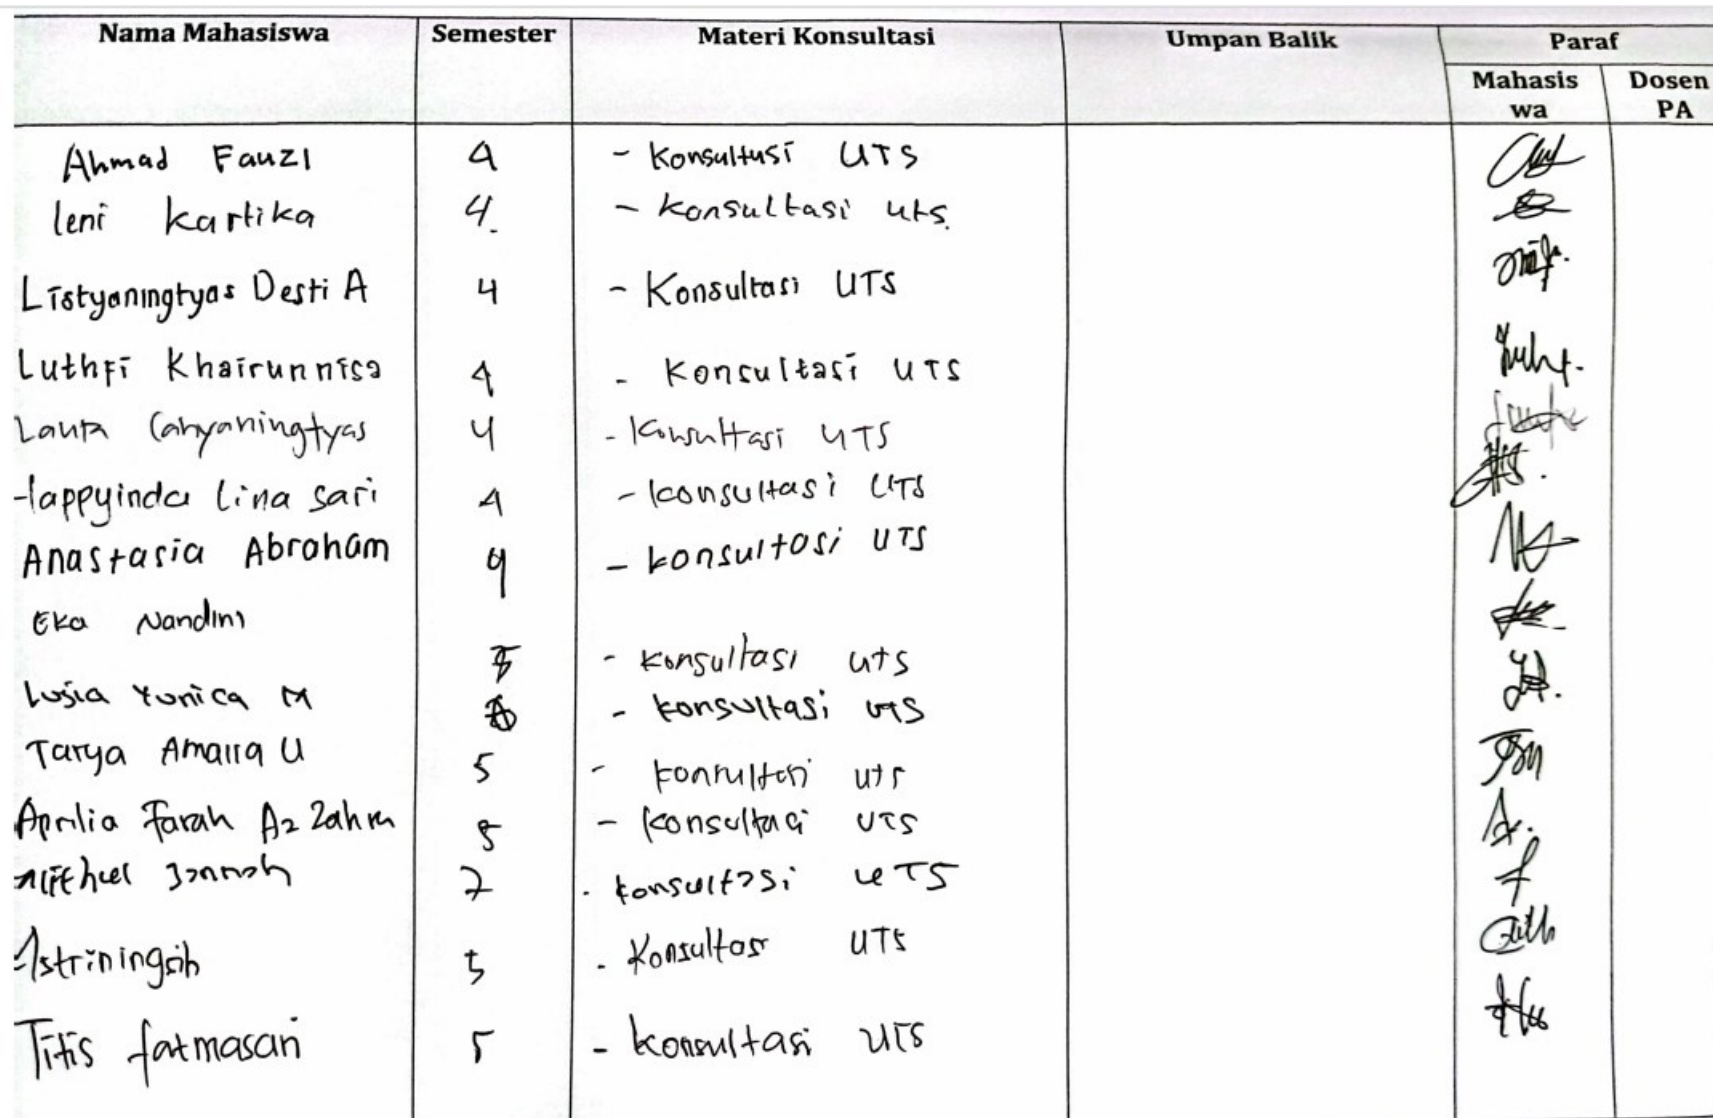 Nama Mahasiswa Semester Materi Konsultasi Umpan Balik Paraf
Mahasis wa Dosen PA
Ahmad Fauzi 4 - Konsultusi UTS
leni kartika 4. - konsultasi uts.
Listyaningtyas Desti A 4 - Konsultasi UTS
Luthfi Khairunnisa 4 - Konsultasi UTS
Cahyaningtyas 4 - Konsultasi UTS
Happyinda Lina sari 4 - konsultasi UTS
Anastasia Abraham 4 - konsultasi UTS
Eka Nandini
- konsultasi uts
Lusia Yunica M - konsultasi UTS
Tarya Amalia U 5 - konsultasi uts
Aprilia Farah Az Zahra 5 - konsultasi UTS
Jannah 7 - konsultasi UTS
Astriningsih 5 - Konsultasi UTS
Titis fatmasari 5 - konsultasi UTS